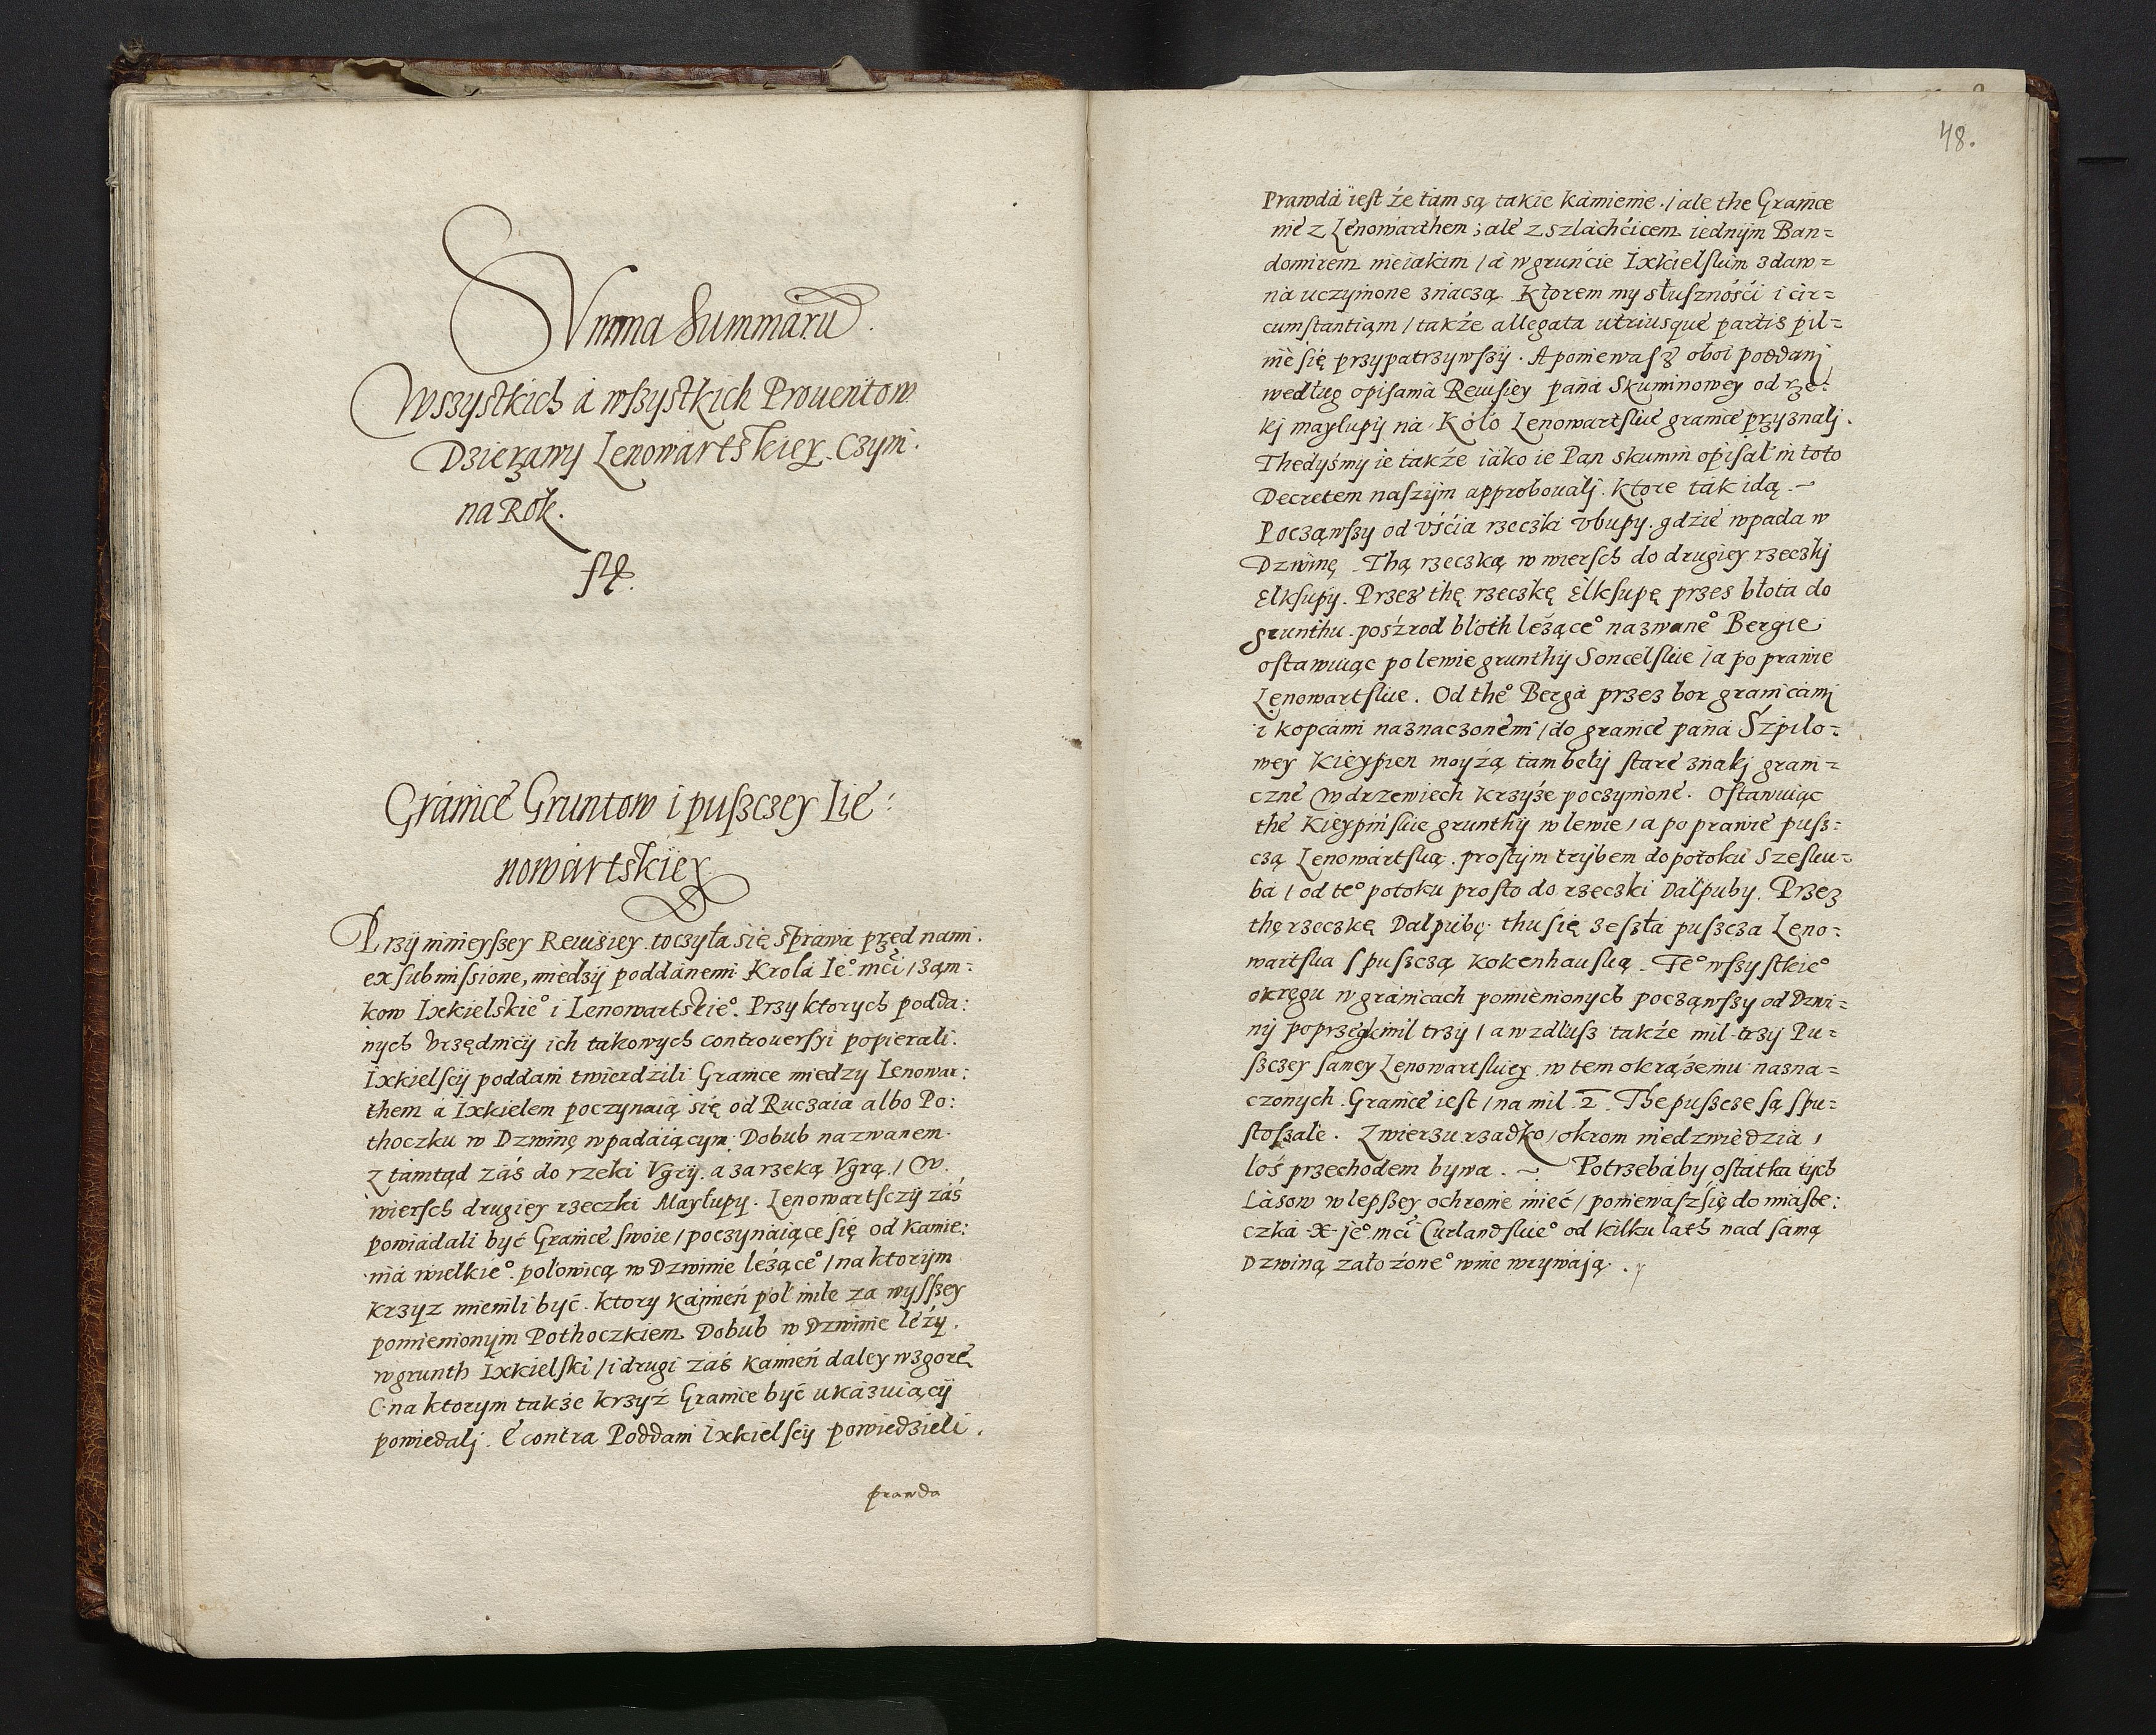 Summa Summaru
Wszystkich á wszystkich Prouentow
Dzierzawy Lenowartskiey Czyni
na Rok.
fl
Gránice Gruntow i puszczey Lie:
nowártskiey
Przy ninieyszey Reuisiey toczyła się spráwá przed nami.
ex submissione, miedzy poddánemi Krolá Ieº mći / zam:
kow Ixkielskieº i Lenowartskieº. Przy ktorych podda:
nych Vrzędnicy ich takowych controuersyi popierali.
Ixkielscy poddani twierdzili Granice miedzy Lenowar:
them á Ixkielem poczynaią się od Ruczaia albo Po:
thoczku w Dzwinę wpadaiącym Dobub nazwanem.
Z tamtąd záś do rzeki Vgry. a za rzeką Vgrą / W
wiersch drugiey rzeczki Mayłupy. Lenowartsczy záś
powiádali być Gránice swoie / poczynáiące się od kamie:
niá wielkieº. połowicą w Dzwinie leżąceº / na ktorym
krzyz mienili być. ktory kamień poł mile za wyszszey
pomienionym Pothoczkiem Dobub w Dzwinie leży.
w grunth Ixkielski / i drugi záś kamień daley wzgorę
C na ktorym także krzyż Granice być ukázuiący
powiedalj. E contra Poddani Ixkielscy powiedzieli.
prawda
48.
Prawdá iest że tam są takie kámienie. / ale the Granice
nie z Lenowárthem; ale z szláchćicem iednym Ban=
domirem nieiakim / á w grunćie Ixkielskim zdaw=
ná uczynione znáczą. Ktorem my słusznośći i cir=
cumstantiam / także allegata utriusque partis pil=
nie się przypatrzywszy. A poniewasz oboi poddanj
według opisaniá Reuisiey páná Skuminowey od rze:
kj mayłupy ná Koło Lenowartskie granice przyznalj.
Thedyśmy ie także iáko ie Pan Skumin opisał in toto
Decretem naszym approbowalj. Ktore ták idą.
Począwszy od Vśćia rzeczki Vbupy. gdzie wpada w
Dzwinę. Thą rzeczką w wiersch do drugiey rzeczkj
Elksupy. Przez thę rzeczkę Elksupę przes błota do
grunthu pośrzod błoth leżąceº nazwaneº Bergie
ostawuiąc po lewie grunthy Soncelskie / a po prawie
Lenowartskie. Od theº Bergá przez bor granicami
i kopcámi náznaczonemi / do granice páná Szpilo=
wey Kieypien moyzą tam były stare znakj grani=
czne W drzewiech krzyże poczynione. Ostawuiąc
the Kieypińskie grunthy w lewie / a po prawie pusz=
czą Lenowártską. prostym trybem do potoku Szesku=
bá / od teº potoku prosto do rzeczki Dalpuby. Przez
thę rzeczkę Dalpubę. thu się zeszła puszcza Leno=
wartska s puszczą kokenhauską. Teº wszystkieº
okręgu w gránicach pomienionych począwszy od Dzwi=
ny poprzek mil trzy / a w zdłusz także mil trzy Pu=
szczey samey Lenowartskiey w tem okrążeniu nazna=
czonych. Granice iest / na mil 2. The puszcze są spu=
stoszałe. Zwierzu rzadko / okrom niedzwiedzia,
łoś przechodem bywa. Potrzebáby ostátká tych
Lásow w lepszey ochronie mieć / poniewasz się do miáste:
czká X. jeº mći Curlandskieº od kilku lath nad samą
Dzwiną założoneº wnie wrywáją.